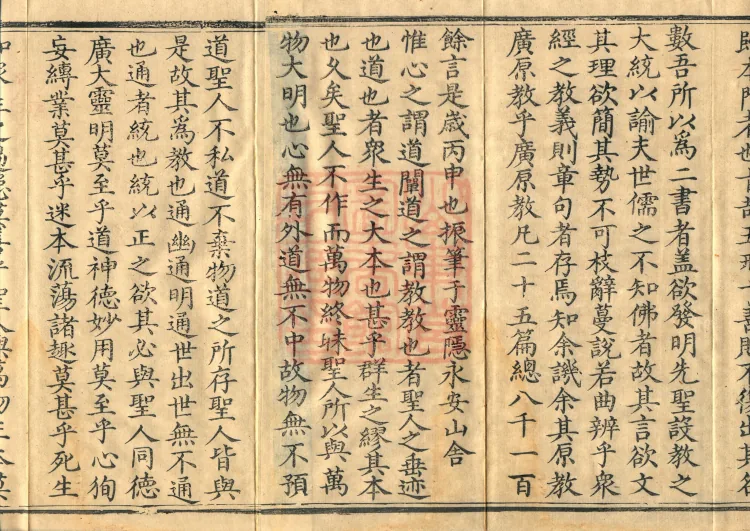 數吾所以爲二書者盖欲發明先聖設教之
大統以諭夫世儒之不知佛者故其言欲文
其理欲簡其勢不可枝辭蔓說若曲辨乎衆
經之教義則章句者存焉知余譏余其原教
廣原教乎廣原教凡二十五篇總八千一百
餘言是歲丙申也振筆于靈隱永安山舍
惟心之謂道闡道之謂教教也者聖人之垂迹
也道也者衆生之大本也甚乎群生之繆其本
也久矣聖人不作而萬物終昧聖人所以與萬
物大明也心無有外道無不中故物無不預
道聖人不私道不棄物道之所存聖人皆與
是故其爲教也通幽通明通世出世無不通
也通者統也統以正之欲其必與聖人同德
廣大靈明莫至乎道神德妙用莫至乎心徇
妄縛業莫甚乎迷本流蕩諸趣莫甚乎死生